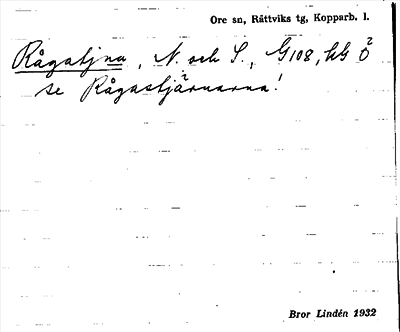 Ore sn, Rättviks tg, Kopparb. l.
Rågatjna, N. och S., G108, hG
se Rågastjärnarna!
Bror Lindén 1932